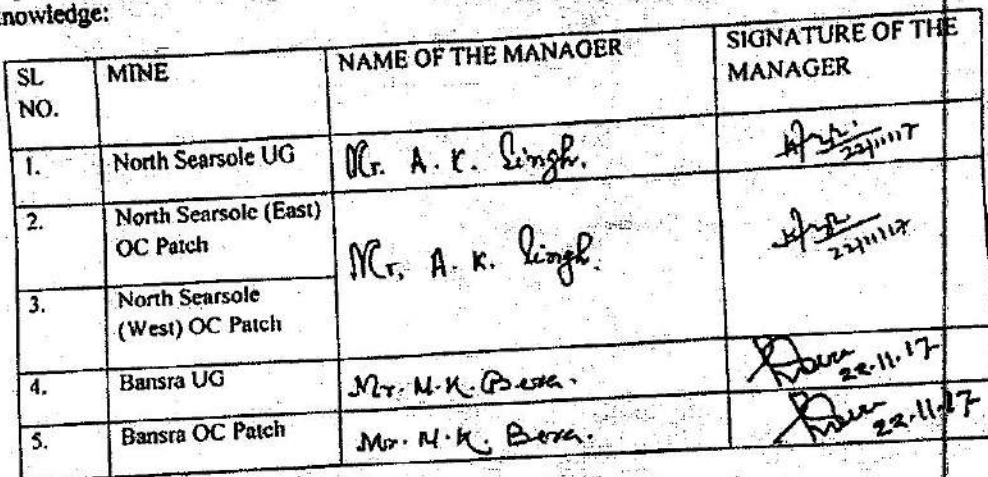 nowledge:
SL NO. MINE NAME OF THE MANAGER SIGNATURE OF THE MANAGER
1. North Searsole UG Mr. A. K. Singh. 22/11/17
2. North Searsole (East) OC Patch Mr. A. K. Singh. 22/11/17
3. North Searsole (West) OC Patch
4. Bansra UG Mr. M. K. Bera. 22.11.17
5. Bansra OC Patch Mr. M. K. Bera. 22.11.17